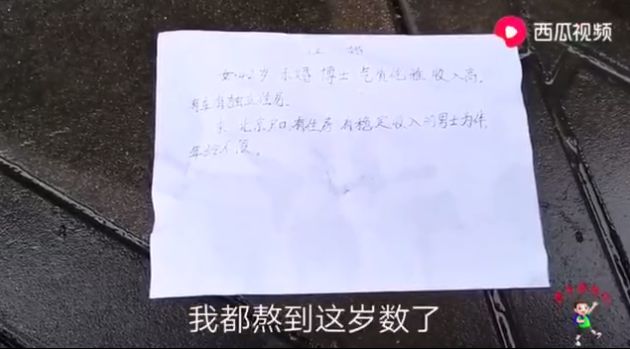 西瓜视频
征 婚
女 42岁 未婚 博士 气质优雅 收入高
有车有独立住房。
求 北京户口 有住房 有稳定收入的男士为伴,
年龄不限。
我都熬到这岁数了